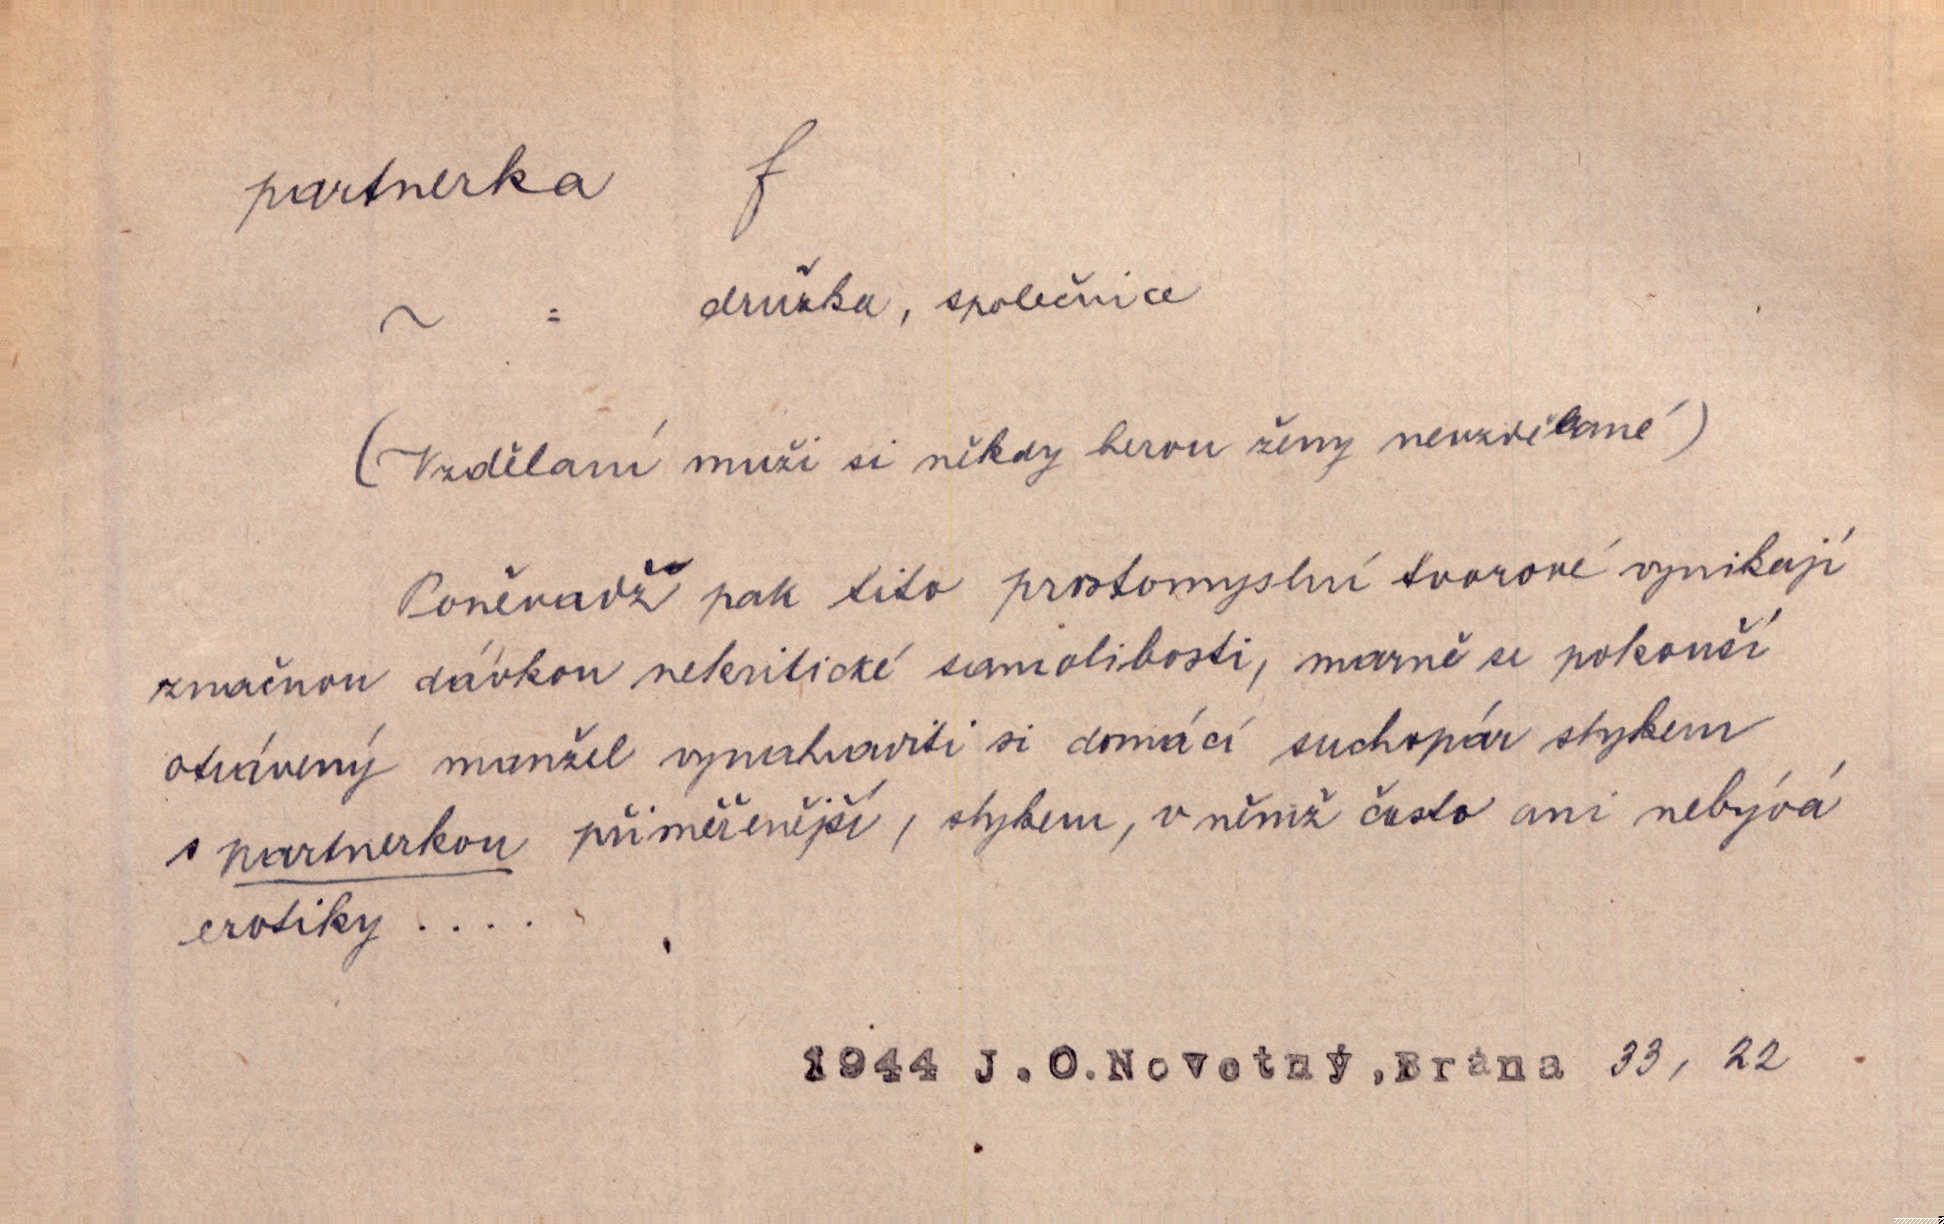 partnerka f
~ = družka, společnice
(Vzdělaní muži si někdy berou ženy nevzdělané)
Poněvadž pak tito prostomyslní tvorové vynikají
značnou dávkou nekritické samolibosti, marně se pokouší
otrávený manžel vynahraditi si domácí suchopár stykem
s partnerkou přiměřenější, stykem, v němž často ani nebývá
erotiky ....
1944 J.O.Novotný,Brána 33, 22